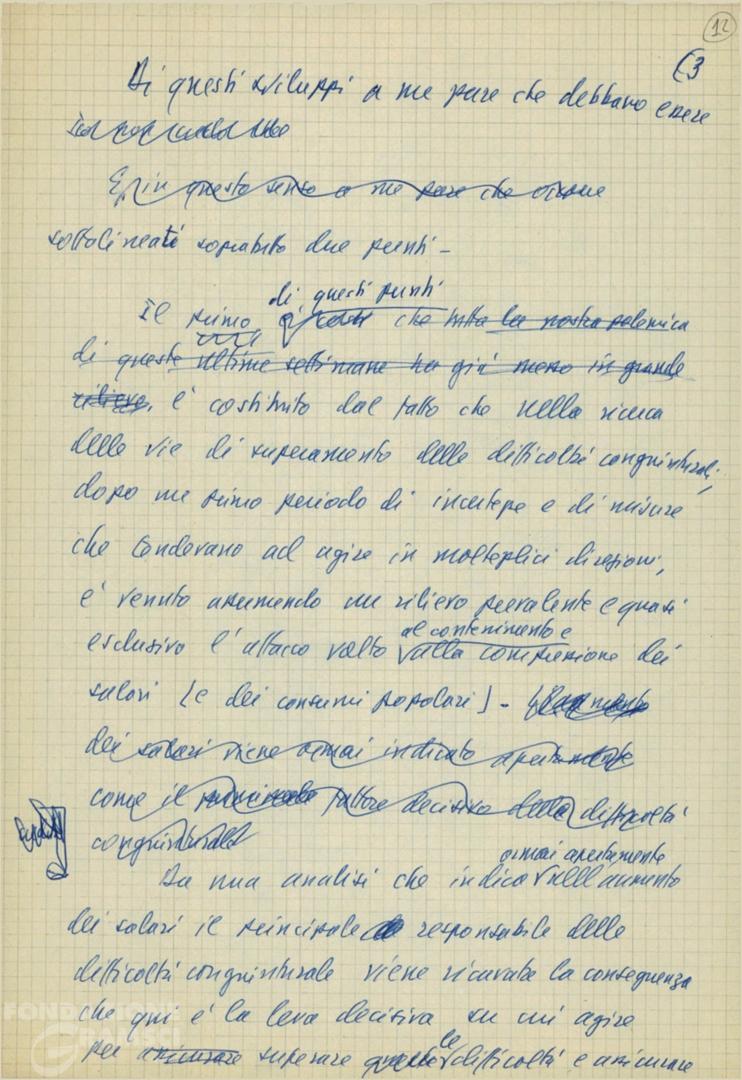 12
(3
Di questi sviluppi a me pare che debbano essere
E in questo senso a me pare che
sottolineati soprattutto due punti –
di questi punti
Il primo che tutta la nostra polemica
di queste ultime settimane ha già messo in grande
rilievo, è costituito dal fatto che nella ricerca
delle vie di superamento delle difficoltà congiunturali,
dopo un primo periodo di incertezze e di misure
che tendevano ad agire in molteplici direzioni,
è venuto assumendo un rilievo prevalente e quasi
al contenimento e
esclusivo l'attacco volto alla compressione dei
salari (e dei consumi popolari) –
dei salari viene ormai indicato apertamente
come il principale fattore decisivo della difficoltà
congiunturale
ormai apertamente
Da una analisi che indica nell'aumento
dei salari il principale responsabile delle
difficoltà congiunturale viene ricavata la conseguenza
che qui è la leva decisiva su cui agire
le
per assicurare superare queste difficoltà e assicurare
FONDAZIONE
GRAMSCI